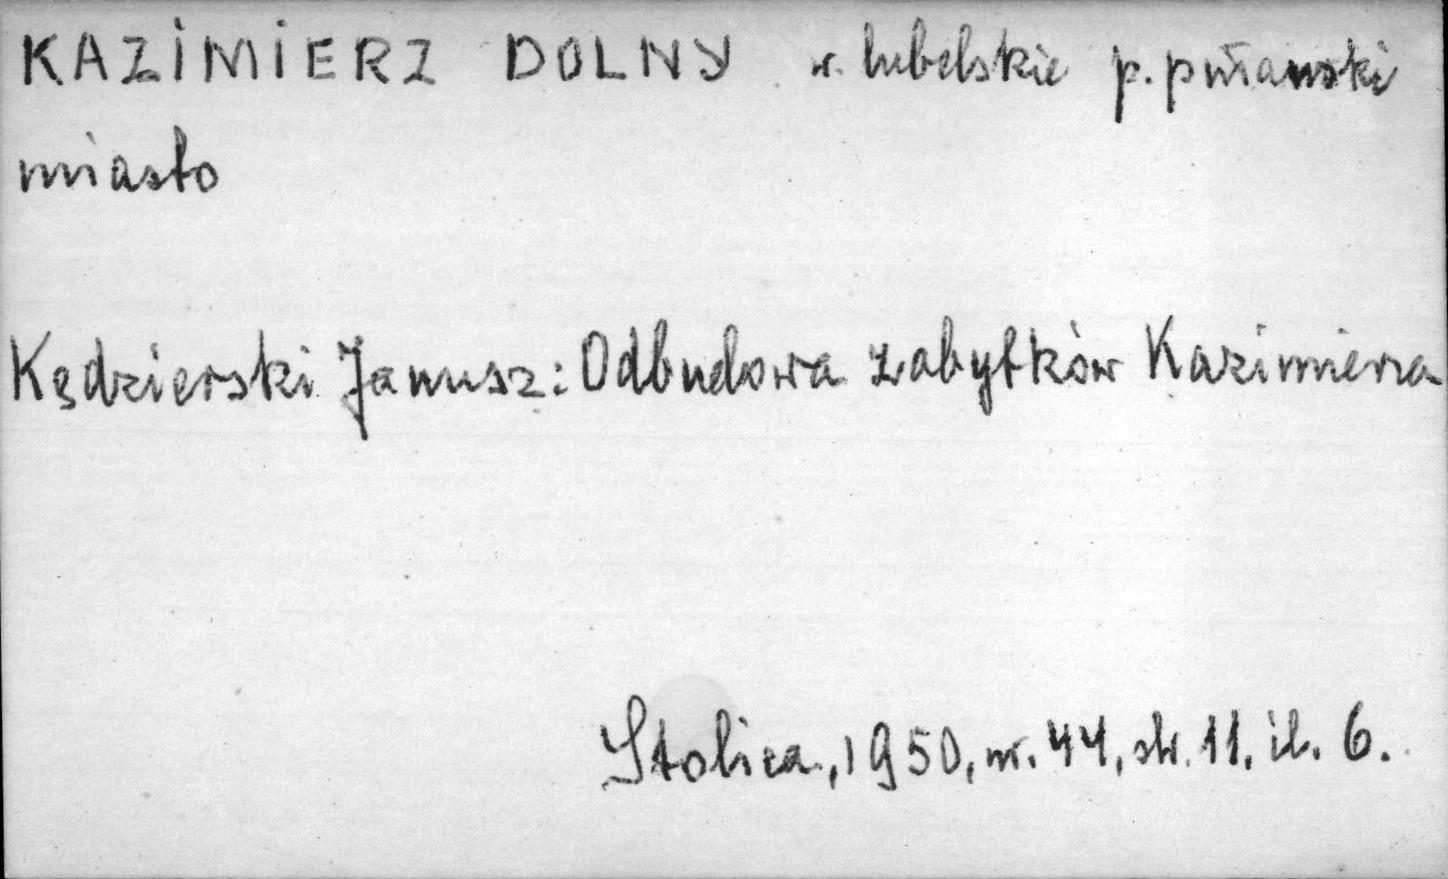 KAZIMIERZ DOLNY w. lubelskie p. puławski
miasto
Kędzierski Janusz: Odbudowa zabytków Kazimierza
Stolica, 1950, nr. 44, str. 11, il. 6.